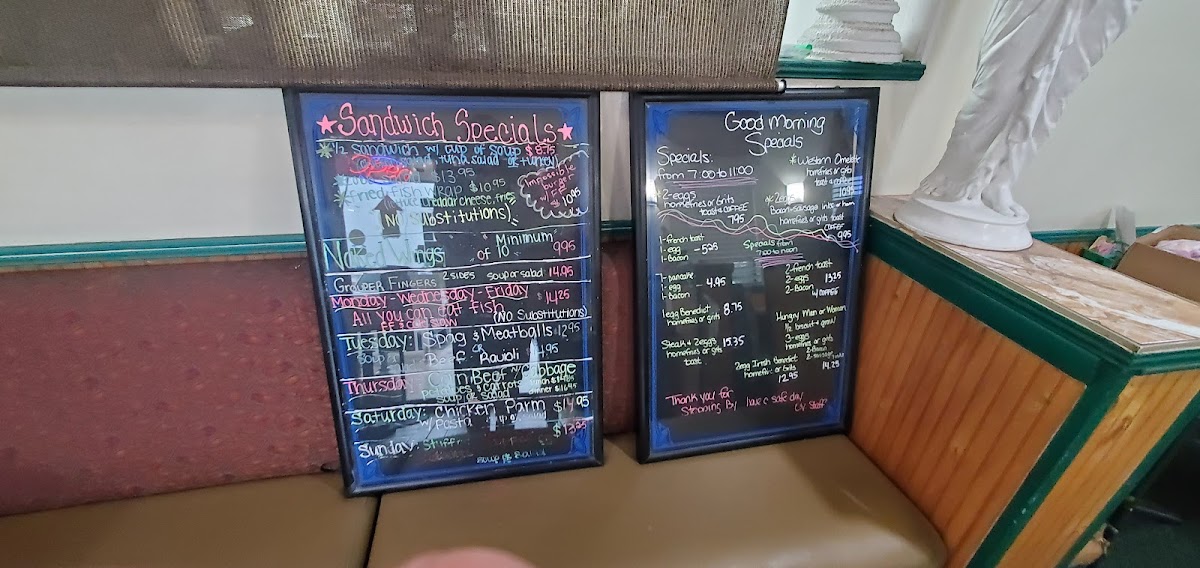 Sandwich Specials
1/2 Sandwich w/ cup of soup $8.75
salad, tuna salad or turkey
Open
$13.95
Fried Fish Wrap $10.95
cheddar cheese, fries
(No Substitutions)
Impossible
burger
w/ FF
$10.95
Naked Wings
Minimum
of 10
9.95
Grouper Fingers 2 sides soup or salad 14.95
Monday - Wednesday - Friday
All you can eat fish
$14.25
FF & Cole Slaw (No Substitutions)
Tuesday: Spag & Meatballs $12.95
Soup or
Beef Ravioli
Thursday: Corn Beef w/ Cabbage
potatoes & carrots
soup or salad
Saturday: Chicken Parm $14.95
w/ Pasta
Sunday: Stuffed
$13.25
soup or salad
Good Morning
Specials
Specials:
from 7:00 to 11:00
2-eggs
homefries or grits
toast & COFFEE
7.95
* Western Omelette
homefries or grits
toast & coffee
10.95
2 eggs
Bacon, sausage links or ham
homefries or grits toast
COFFEE
9.95
1-french toast
1-egg
1-Bacon
- 5.25
Specials from
7:00 to noon
1-pancake
1-egg
1-Bacon
- 4.95
2-french toast
2-eggs
2-Bacon
13.25
w/ COFFEE
1 egg Benedict
homefries or grits
8.75
Hungry Man or Woman
1/2 biscuit & gravy
3-eggs
homefries or grits
2-Bacon
2-sausage links
14.25
Steak & 2 eggs
homefries or grits
toast
13.35
2 egg Irish Benedict
homefries or Grits
12.95
Thank you for
Stopping By
have a safe day
Ev Staff